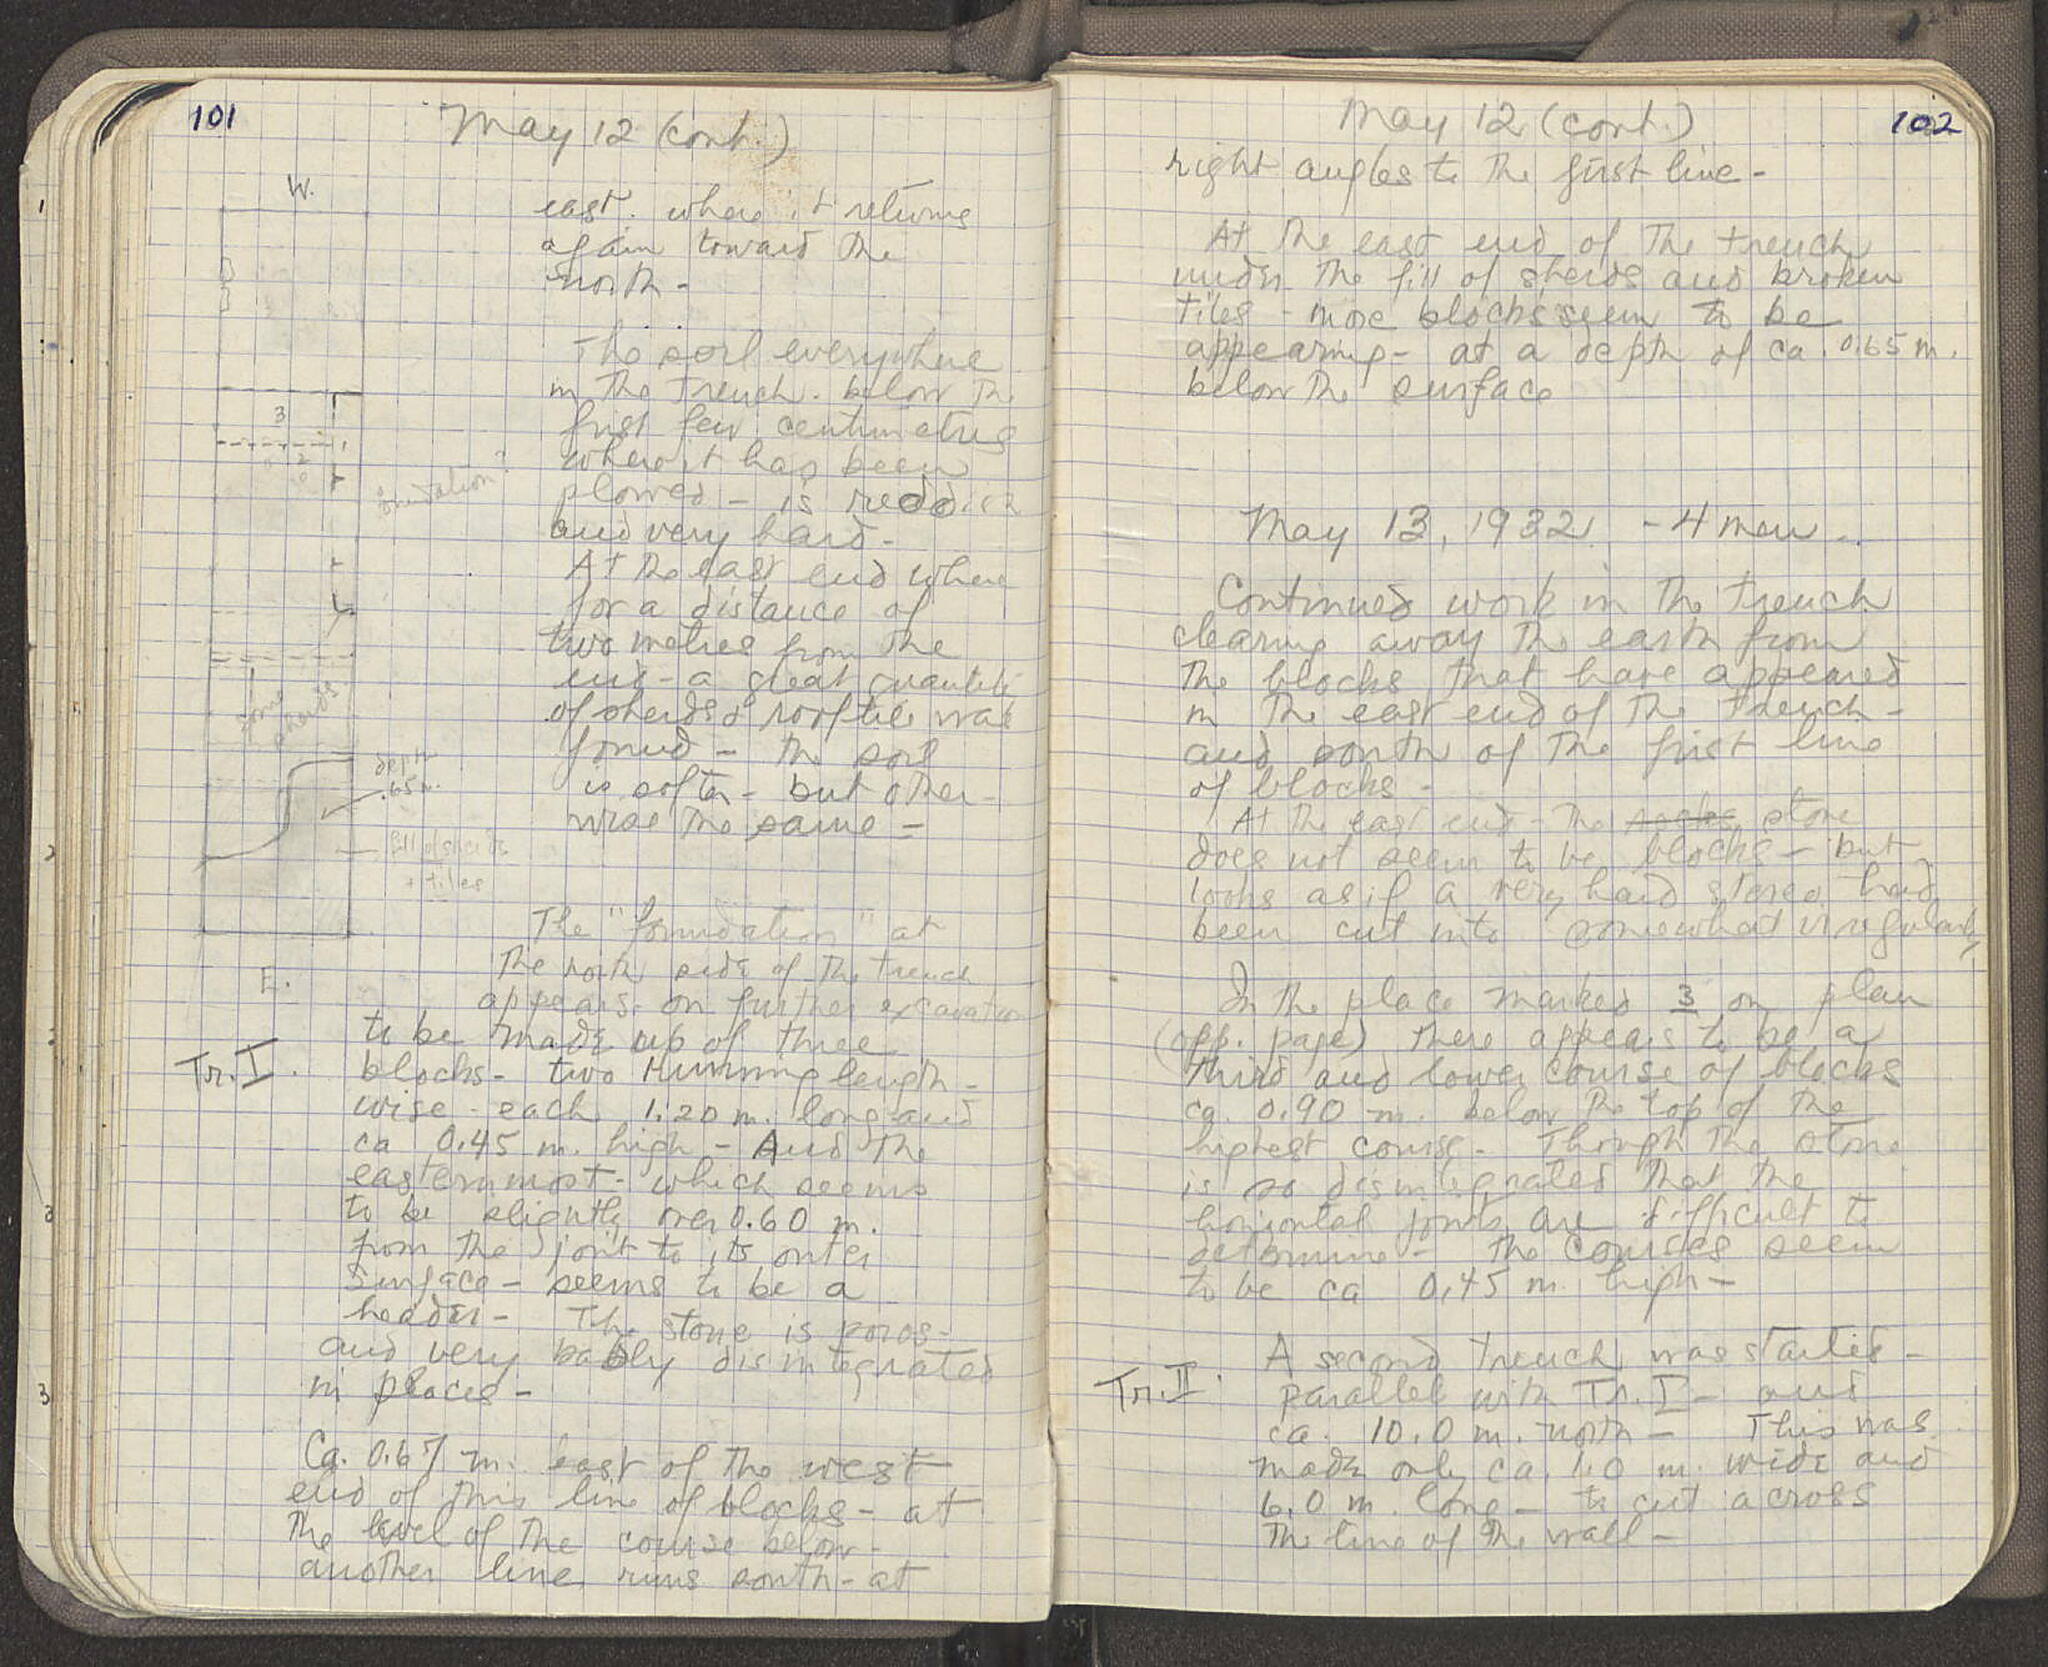 101
May 12 (cont.)
W.
east. where it returns
again toward the
north -
The soil everywhere
in the trench. below the
first few centimetres
where it has been
plowed - is reddish
and very hard -
At the east end where
for a distance of
two metres from the
end - a great quantity
of sherds & rooftile was
found - the soil
is softer - but other-
wise the same -
3
2
orientation?
some
sherds
depth
.65 m.
fill of sherds
+ tiles
E.
Tr. I.
The "foundation" at
the north side of the trench
appears. on further excavation
to be made up of three
blocks - two running length-
wise - each 1.20 m. long and
ca 0.45 m. high - And the
easternmost - which seems
to be slightly over 0.60 m.
from the joint to its outer
surface - seems to be a
header - The stone is poros -
and very badly disintegrated
in places -
Ca. 0.67 m. east of the west
end of this line of blocks - at
the level of the course below -
another line runs south - at
102
May 12 (cont.)
right angles to the first line -
At the east end of the trench
under the fill of sherds and broken
tiles - more blocks seem to be
appearing - at a depth of ca. 0.65 m.
below the surface
May 13, 1932. - 4 men -
Continued work in the trench
clearing away the earth from
the blocks that have appeared
in the east end of the trench -
and south of the first line
of blocks -
At the east end - the stone
does not seem to be blocks - but
looks as if a very hard stereo had
been cut into somewhat irregularly
In the place marked 3 on plan
(opp. page) there appears to be a
third and lower course of blocks
ca. 0.90 m. below the top of the
highest course - Though the stone
is so disintegrated that the
horizontal joints are difficult to
determine - the courses seem
to be ca 0.45 m. high -
Tr. II.
A second trench was started -
parallel with Tr. I - and
ca. 10.0 m. north - This was
made only ca. 1.0 m. wide and
6.0 m. long - to cut across
the line of the wall -